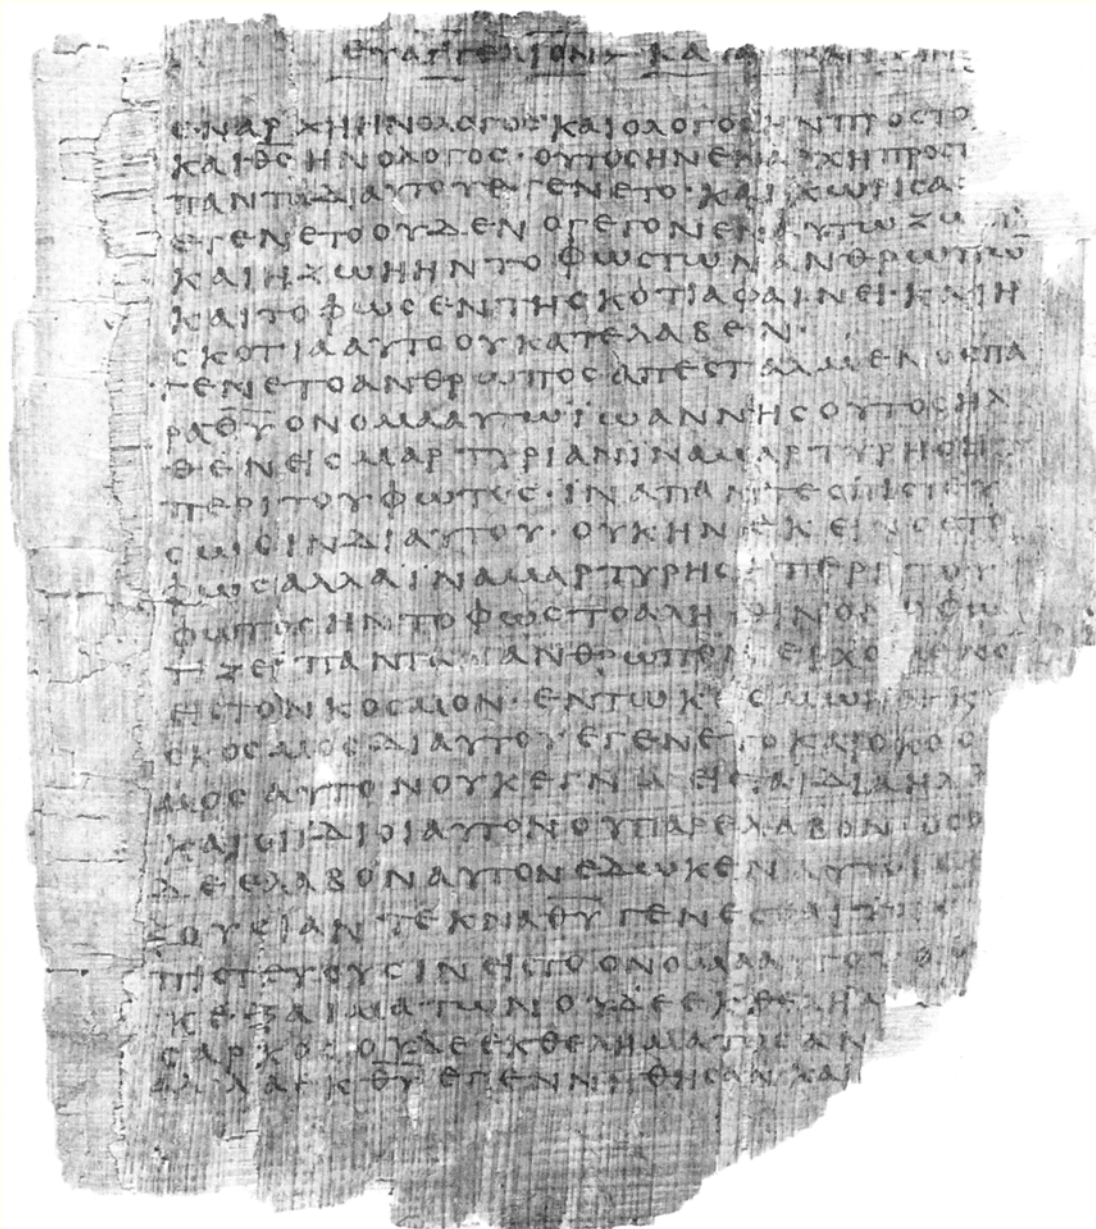 ΕΥΑΓΓΕΛΙΟΝ ΚΑΤΑ
ΕΝΑΡΧΗΗΝΟΛΟΓΟΣ ΚΑΙΟΛΟΓΟΣΗΝΠΡΟΣΤΟ
ΚΑΙΘΣΗΝΟΛΟΓΟΣ · ΟΥΤΟΣΗΝΕΝΑΡΧΗΠΡΟΣΤ
ΠΑΝΤΑΔΙΑΥΤΟΥΕΓΕΝΕΤΟ · ΚΑΙΧΩΡΙΣΑ
ΕΓΕΝΕΤΟΟΥΔΕΝ ΟΓΕΓΟΝΕΝΑΥΤΩΖΩ
ΚΑΙΗΖΩΗΗΝΤΟΦΩΣΤΩΝΑΝΘΡΩΠΩ
ΚΑΙΤΟΦΩΣΕΝΤΗΣΚΟΤΙΑΦΑΙΝΕΙ · ΚΑΙΗ
ΣΚΟΤΙΑΑΥΤΟΟΥΚΑΤΕΛΑΒΕΝ ·
ΓΕΝΕΤΟΑΝΘΡΩΠΟΣΑΠΕΣΤΑΛΜΕΝΟΣΠΑ
ΡΑΘΥΟΝΟΜΑΑΥΤΩΪΩΑΝΝΗΣΟΥΤΟΣΗΛ
ΘΕΝΕΙΣΜΑΡΤΥΡΙΑΝΪΝΑΜΑΡΤΥΡΗΣΗ
ΠΕΡΙΤΟΥΦΩΤΟΣ · ΙΝΑΠΑΝΤΕΣΠΙΣΤΕΥ
ΣΩΣΙΝΔΙΑΥΤΟΥ · ΟΥΚΗΝΕΚΕΙΝΟΣΤΟ
ΦΩΣΑΛΛΑΪΝΑΜΑΡΤΥΡΗΣΗΠΕΡΙΤΟΥ
ΦΩΤΟΣΗΝΤΟΦΩΣΤΟΑΛΗΘΙΝΟΝΟΦΩ
ΤΙΖΕΙΠΑΝΤΑΑΝΘΡΩΠΟΝΕΡΧΟΜΕΝΟ
ΕΙΣΤΟΝΚΟΣΜΟΝ · ΕΝΤΩΚΟΣΜΩΗΝΚ
ΟΚΟΣΜΟΣΔΙΑΥΤΟΥΕΓΕΝΕΤΟΚΑΙΟΚΟΣ
ΜΟΣΑΥΤΟΝΟΥΚΕΓΝΩ ΕΙΣΤΑΙΔΙΑΗΛ
ΚΑΙΟΙΪΔΙΟΙΑΥΤΟΝΟΥΠΑΡΕΛΑΒΟΝ · ΟΣΟ
ΔΕΕΛΑΒΟΝΑΥΤΟΝΕΔΩΚΕΝΑΥΤΟΙΣΕ
ΞΟΥΣΙΑΝΤΕΚΝΑΘΥΓΕΝΕΣΘΑΙΤΟΙΣ
ΠΙΣΤΕΥΟΥΣΙΝΕΙΣΤΟΟΝΟΜΑΑΥΤΟΥ · ΟΙ
ΚΕΞΑΙΜΑΤΩΝΟΥΔΕΕΚΘΕΛΗΜ
ΣΑΡΚΟΣΟΥΔΕΕΚΘΕΛΗΜΑΤΟΣΑΝ
ΑΛΛΑΕΚΘΥΕΓΕΝΝΗΘΗΣΑΝΚΑΙ